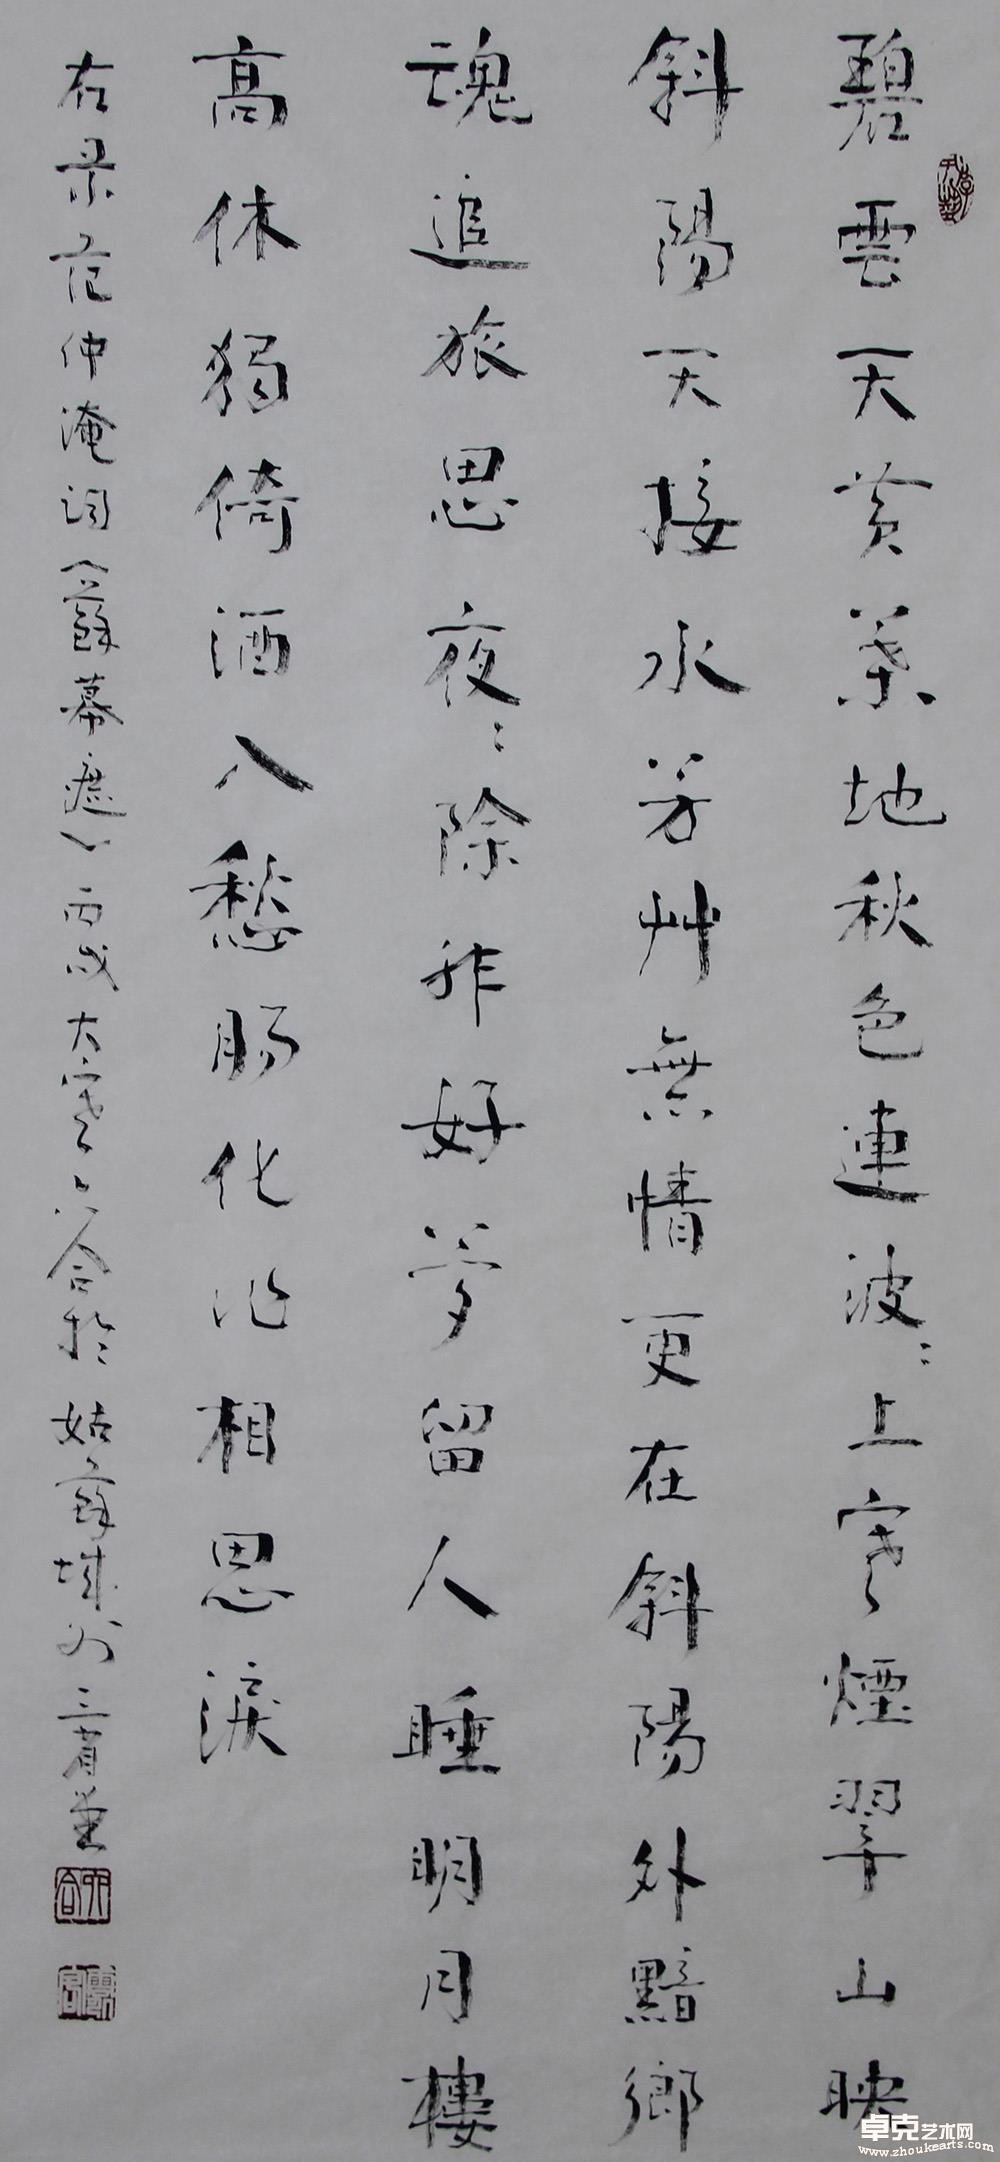 碧雲天黄葉地秋色連波〻上寒煙翠山映
斜陽天接水芳艸無情更在斜陽外黯鄉
魂追旅思夜〻除非好夢留人睡明月樓
高休獨倚酒入愁腸化作相思淚
右录范仲淹词《蘇幕遮》丙戌大寒六合於姑蘇城外三省堂
六合
卓克艺术网
www.zhoukearts.com